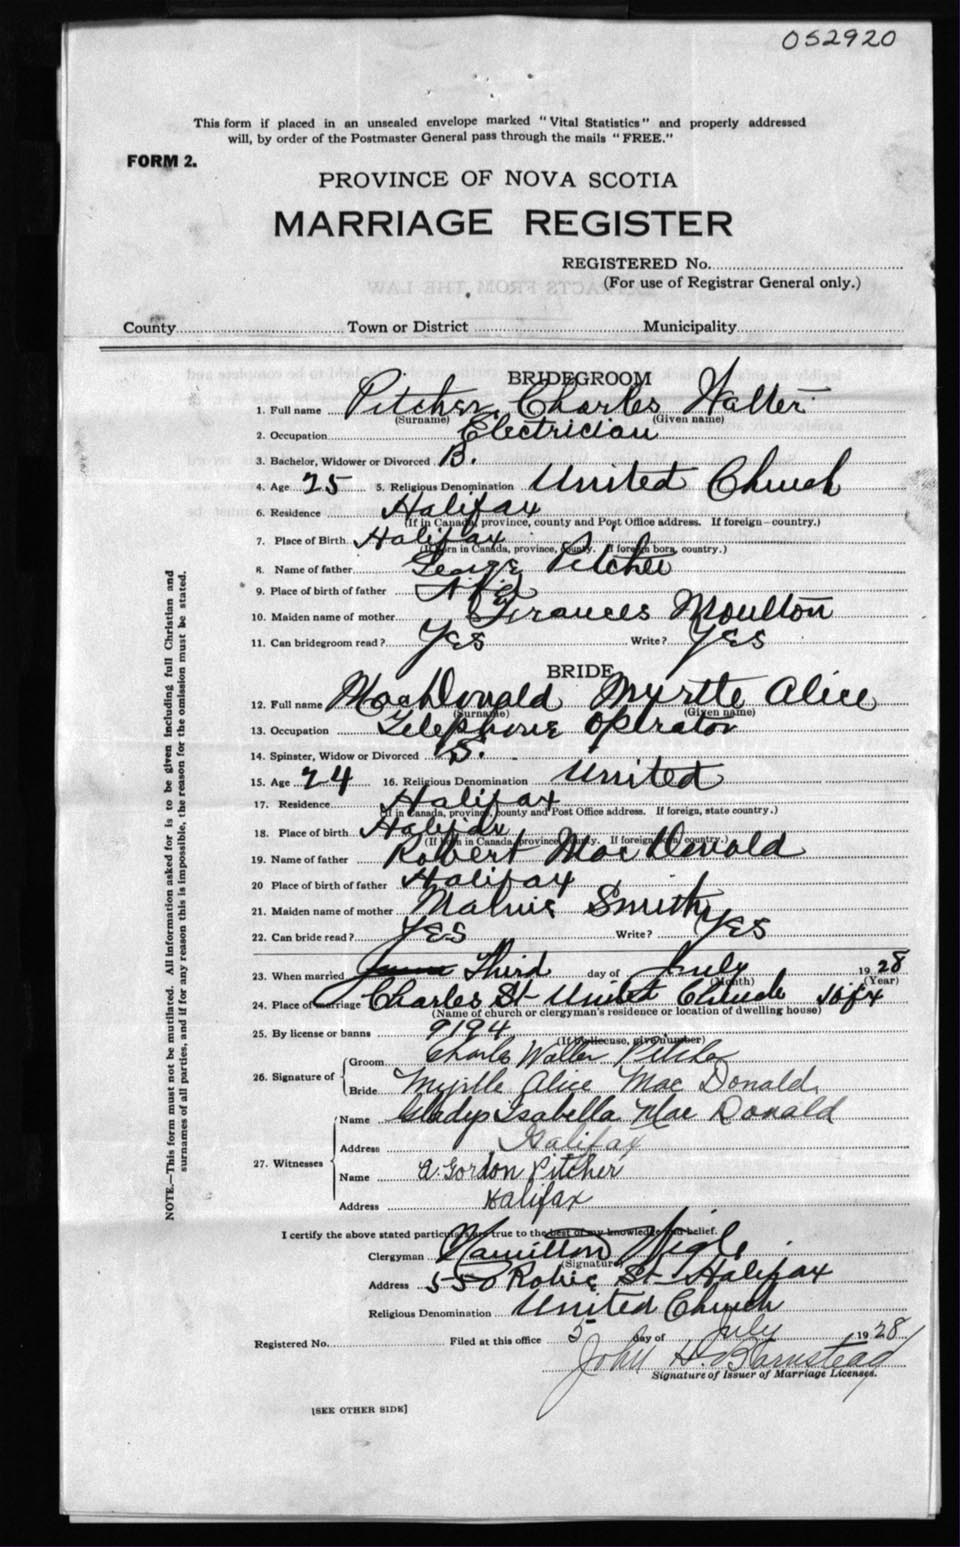 052920
This form if placed in an unsealed envelope marked "Vital Statistics" and properly addressed
will, by order of the Postmaster General pass through the mails "FREE."
FORM 2.
PROVINCE OF NOVA SCOTIA
MARRIAGE REGISTER
REGISTERED No.
(For use of Registrar General only.)
County Town or District Municipality
BRIDEGROOM
1. Full name Pitcher, Charles Walter
(Surname) (Given name)
2. Occupation Electrician
3. Bachelor, Widower or Divorced B.
4. Age 25 5. Religious Denomination United Church
6. Residence Halifax
(If in Canada, province, county and Post Office address. If foreign—country.)
7. Place of Birth Halifax
(If born in Canada, province, county. If foreign born, country.)
8. Name of father George Pitcher
9. Place of birth of father Nfld
10. Maiden name of mother Frances Moulton
11. Can bridegroom read? Yes Write? Yes
BRIDE
12. Full name MacDonald Myrtle Alice
(Surname) (Given name)
13. Occupation Telephone Operator
14. Spinster, Widow or Divorced S.
15. Age 24 16. Religious Denomination United
17. Residence Halifax
(If in Canada, province, county and Post Office address. If foreign, state country.)
18. Place of birth Halifax
(If born in Canada, province, county. If foreign born, country.)
19. Name of father Robert MacDonald
20 Place of birth of father Halifax
21. Maiden name of mother Smith
22. Can bride read? Yes Write? Yes
23. When married Third day of July 1928
(Month) (Year)
24. Place of marriage Charles St United Church Hfx
(Name of church or clergyman's residence or location of dwelling house)
25. By license or banns 9194
(If by license, give number)
26. Signature of Groom Charles Walter Pitcher
Bride Myrtle Alice Mac Donald
27. Witnesses Name Gladys Isabella Mac Donald
Address Halifax
Name A. Gordon Pitcher
Address Halifax
I certify the above stated particulars are true to the best of my knowledge and belief.
Clergyman Hamilton Wigle
(Signature)
Address 550 Robie St Halifax
Religious Denomination United Church
Registered No. Filed at this office 5 day of July 1928
John H. Barnstead
Signature of Issuer of Marriage Licenses.
[SEE OTHER SIDE]
NOTE.—This form must not be mutilated. All information asked for is to be given including full Christian and
surnames of all parties, and if for any reason this is impossible, the reason for the omission must be stated.